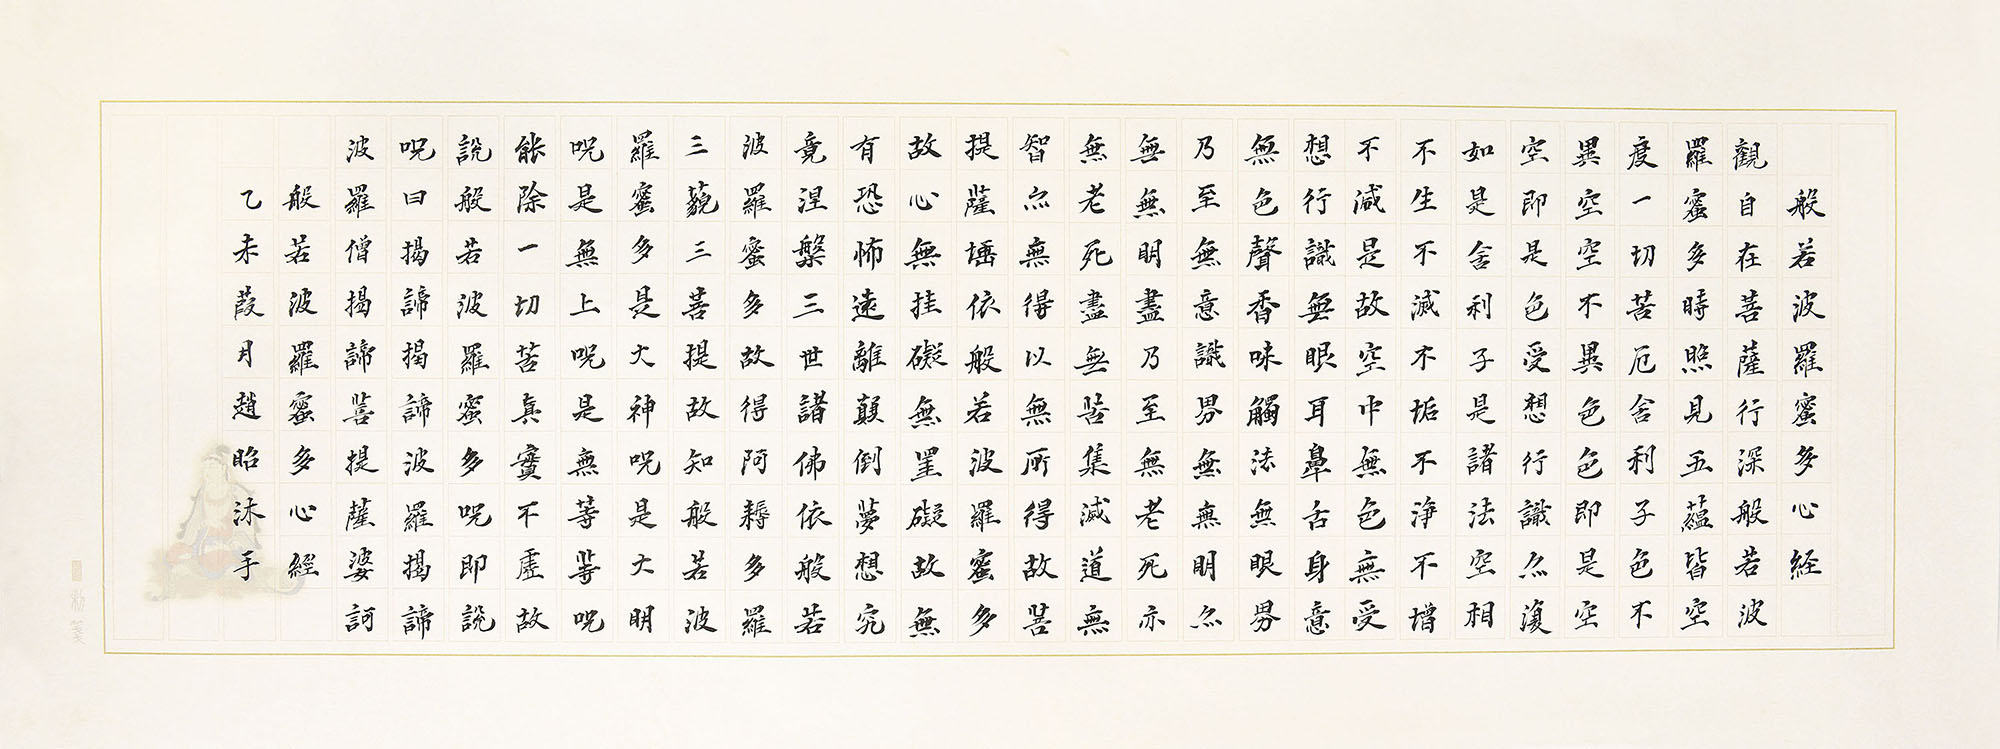 般若波羅蜜多心經
觀自在菩薩行深般若波
羅蜜多時照見五蘊皆空
度一切苦厄舍利子色不
異空空不異色色即是空
空即是色受想行識亦復
如是舍利子是諸法空相
不生不滅不垢不淨不增
不減是故空中無色無受
想行識無眼耳鼻舌身意
無色聲香味觸法無眼界
乃至無意識界無無明亦
無無明盡乃至無老死亦
無老死盡無苦集滅道無
智亦無得以無所得故菩
提薩埵依般若波羅蜜多
故心無挂礙無罣礙故無
有恐怖遠離顛倒夢想究
竟涅槃三世諸佛依般若
波羅蜜多故得阿耨多羅
三藐三菩提故知般若波
羅蜜多是大神呪是大明
呪是無上呪是無等等呪
能除一切苦真實不虛故
說般若波羅蜜多呪即說
呪曰揭諦揭諦波羅揭諦
波羅僧揭諦菩提薩婆訶
般若波羅蜜多心經
乙未葭月趙昭沐手